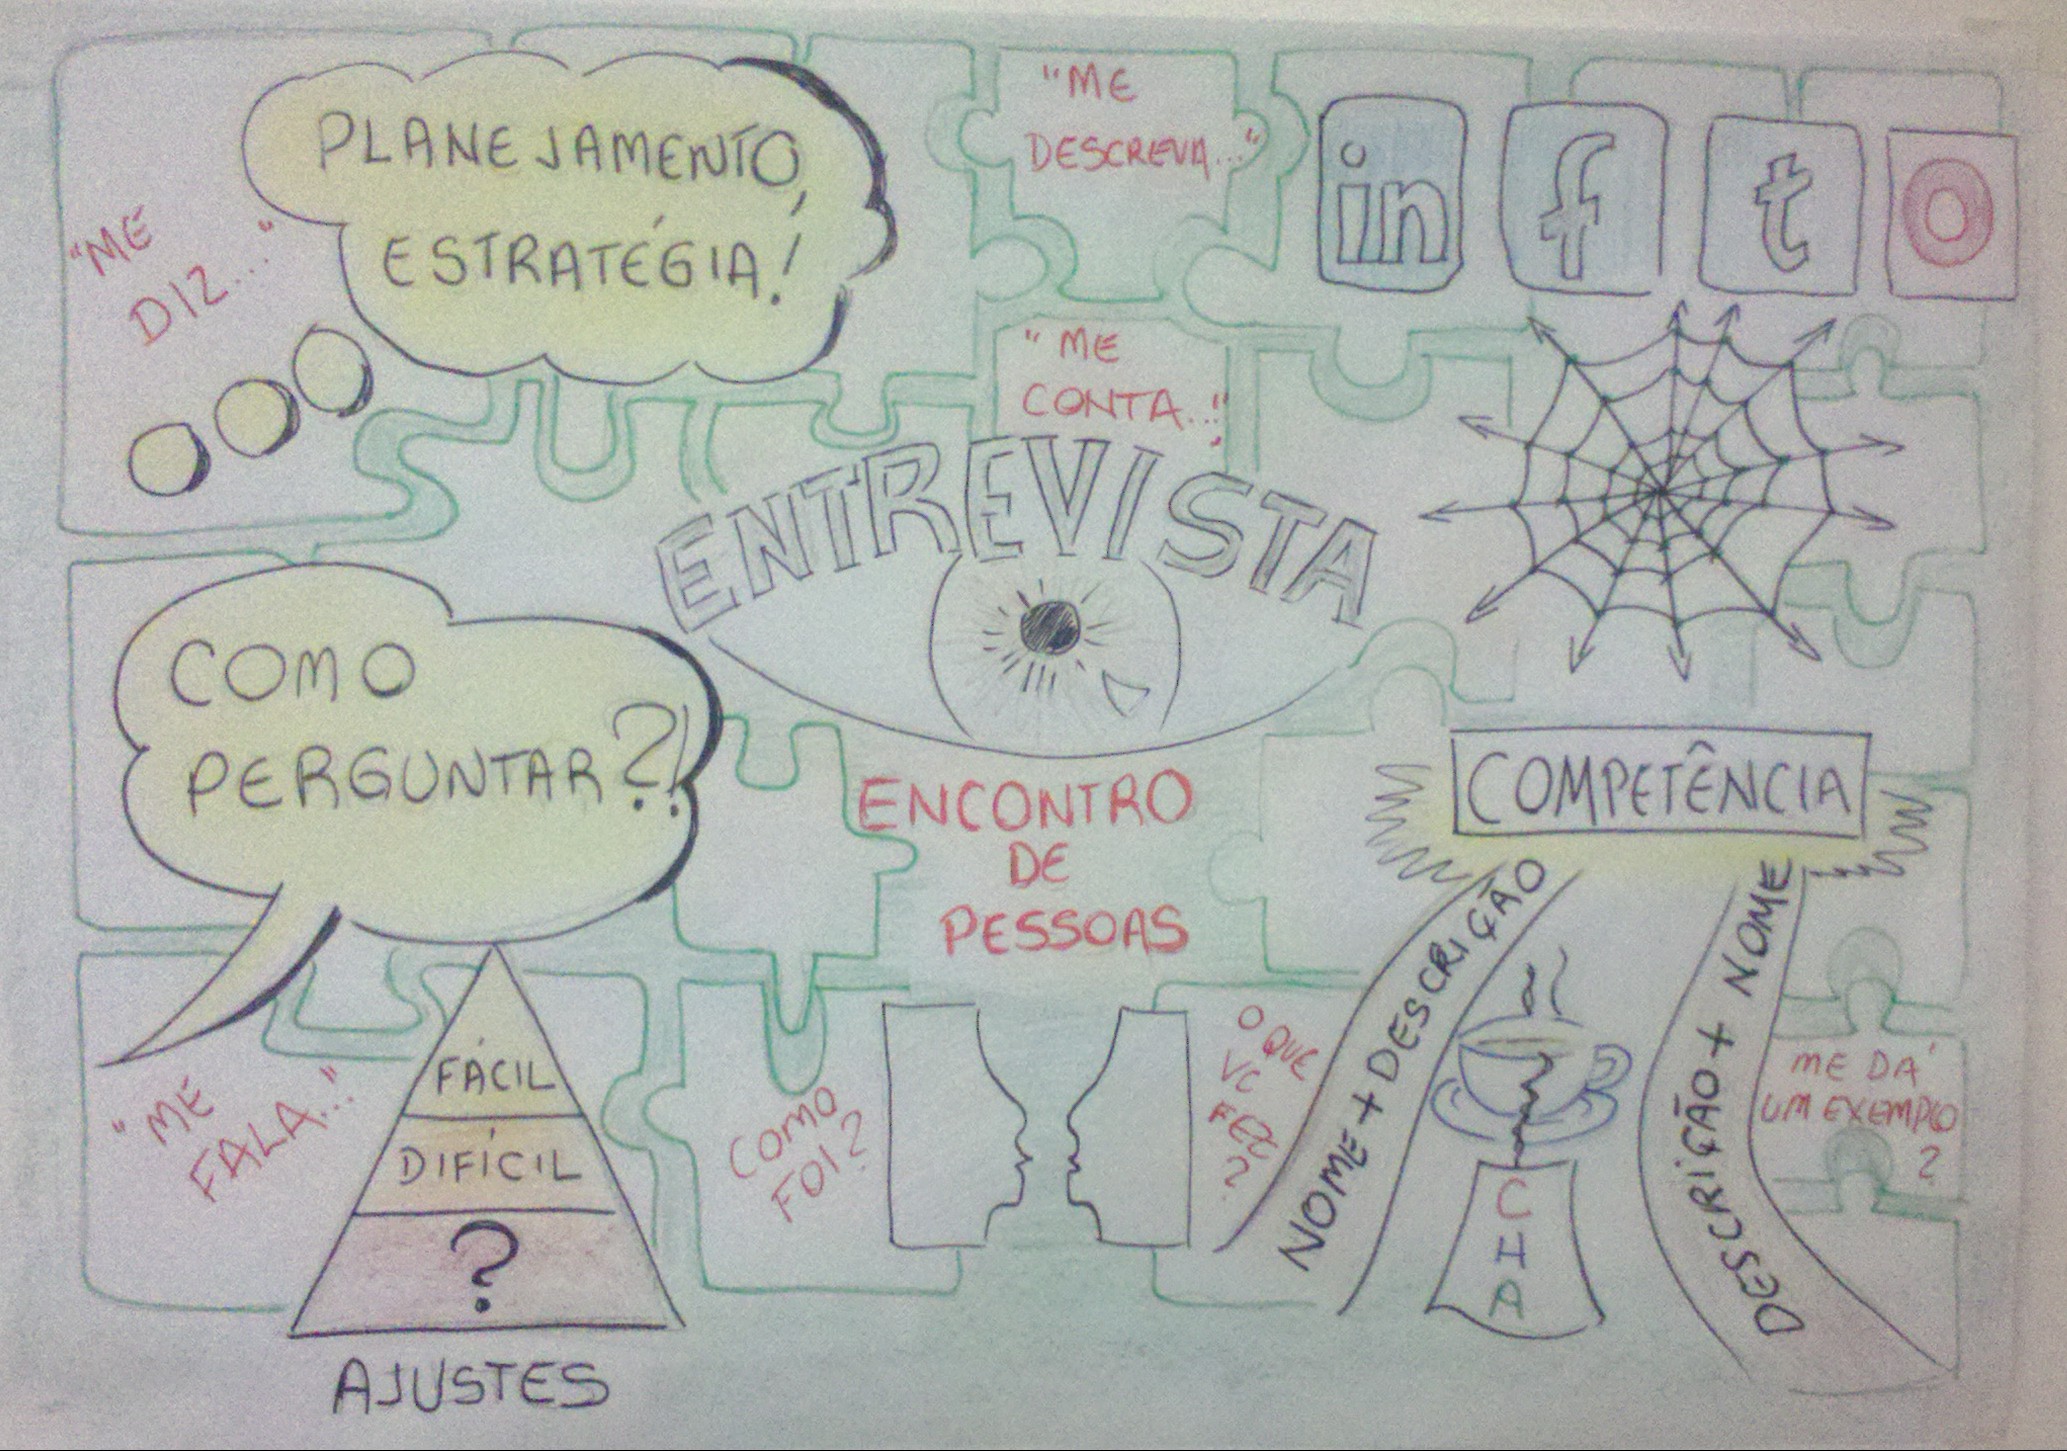 PLANEJAMENTO,
ESTRATÉGIA!
"ME
DIZ..."
"ME
DESCREVA..."
in f t O
"ME
CONTA..."
ENTREVISTA
COMO
PERGUNTAR?!
ENCONTRO
DE
PESSOAS
COMPETÊNCIA
NOME + DESCRIÇÃO
DESCRIÇÃO + NOME
C
H
A
"ME
FALA..."
FÁCIL
DIFÍCIL
?
AJUSTES
COMO
FOI?
O QUE
VC
FEZ
?
ME DÁ
UM EXEMPLO
?